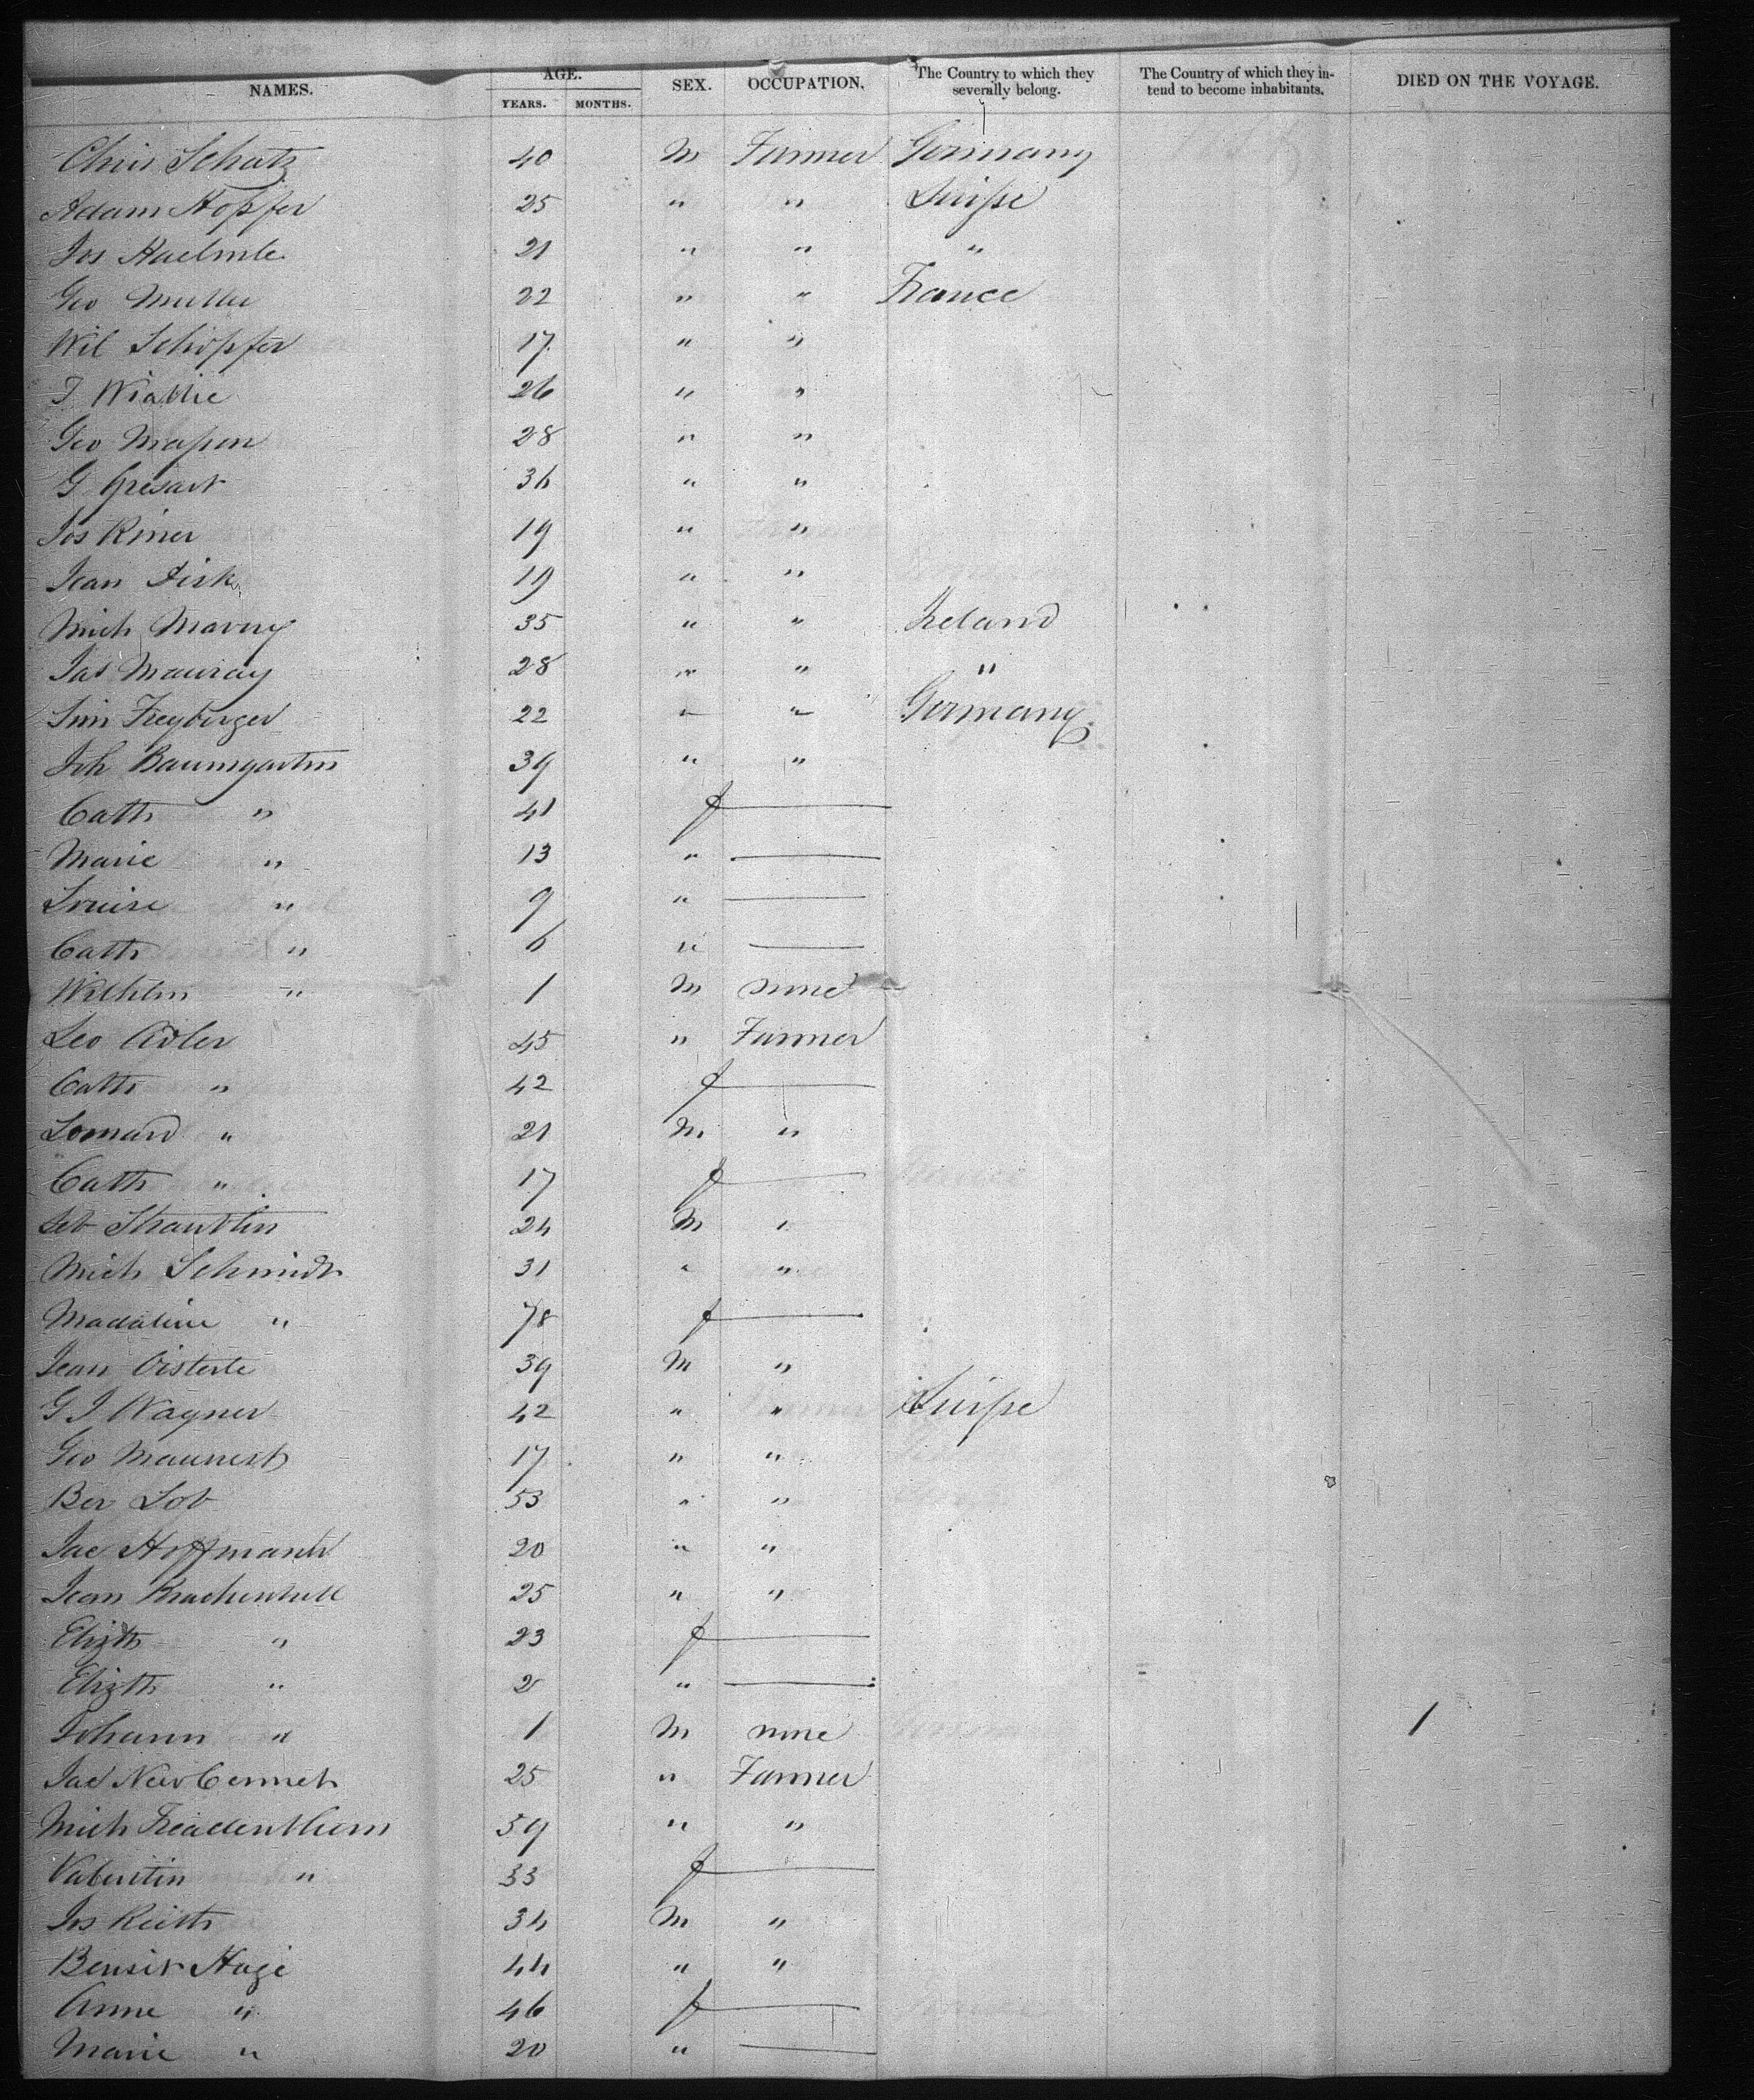 NAMES. AGE. YEARS. MONTHS. SEX. OCCUPATION. The Country to which they severally belong. The Country of which they intend to become inhabitants. DIED ON THE VOYAGE.
Chris Schatz 40 M Farmer Germany
Adam Hopfer 25 " " Suisse
Jos Haelmle 21 " " "
Geo Muller 22 " " France
Wil Schöpfer 17 " "
J 26 " "
Geo 28 " "
G 36 " "
Jos Riner 19 " "
Jean Fisk 19 " "
Mich 35 " " Ireland
Jas Mauray 28 " " "
Sim Freyberger 22 " " Germany
Joh Baumgarten 39 " "
Cath " 41 f
Marie " 13 "
Louise " 9 "
Cath " 6 "
Wilhlm " 1 M none
Leo Adler 45 " Farmer
Cath " 42 f
Leonard " 21 M "
Cath " 17 f
Seb 24 M "
Mich Schmidt 31 " "
Madaline " 78 f
Jean Oisterle 39 M "
G J Wagner 42 " " Suisse
Geo 17 " "
Ber Lob 53 " "
Jac Hoffmann 20 " "
Jean 25 " "
Elizth " 23 f
Elizth " 2 "
Johann " 1 M none 1
Jac 25 " Farmer
Mich 59 " "
Valentin " 33 f
Jos Reith 34 M "
Hagi 44 " "
Anne " 46 f
Marie " 20 "